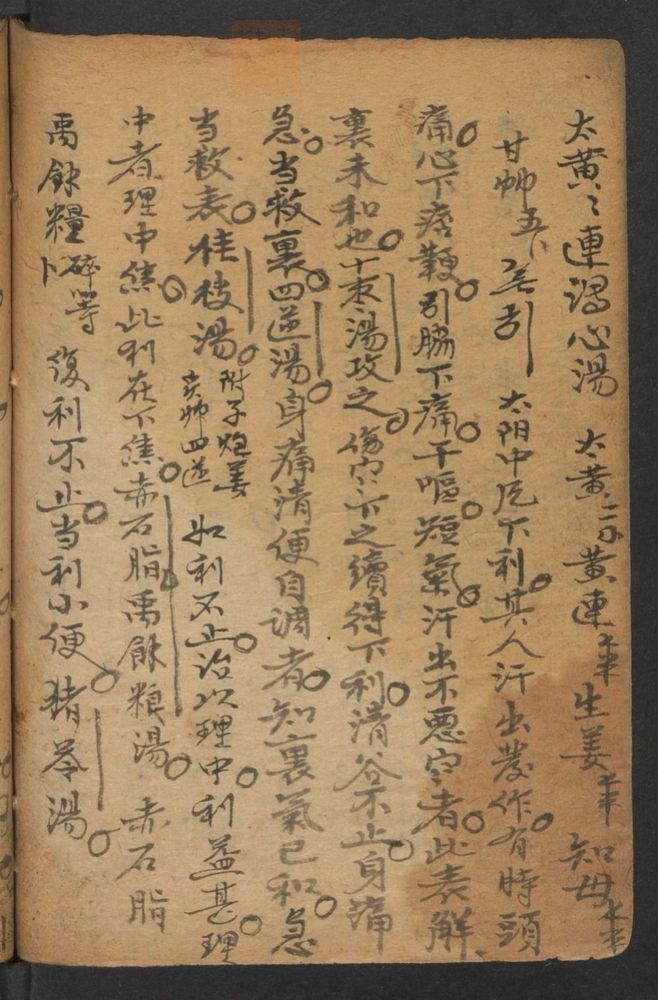 太黄〻連瀉心湯 太黄二 黄連 生姜 知母
甘艸五卜 太阳中风下利其人汗出发作有時頭
痛心下痞鞕引脇下痛干嘔短氣汗出不悪寒者此表解
裏未和也十枣湯攻之傷寒下之續得下利清谷不止身痛
急当救裏四逆湯身痛清便自调者知裏氣已和急
当救表桂枝湯附子炮姜炙艸四逆 如利不止治以理中利益甚理
中者理中焦此利在下焦赤石脂禹餘粮湯 赤石脂
禹餘糧碎等卜 復利不止当利小便猪苓湯